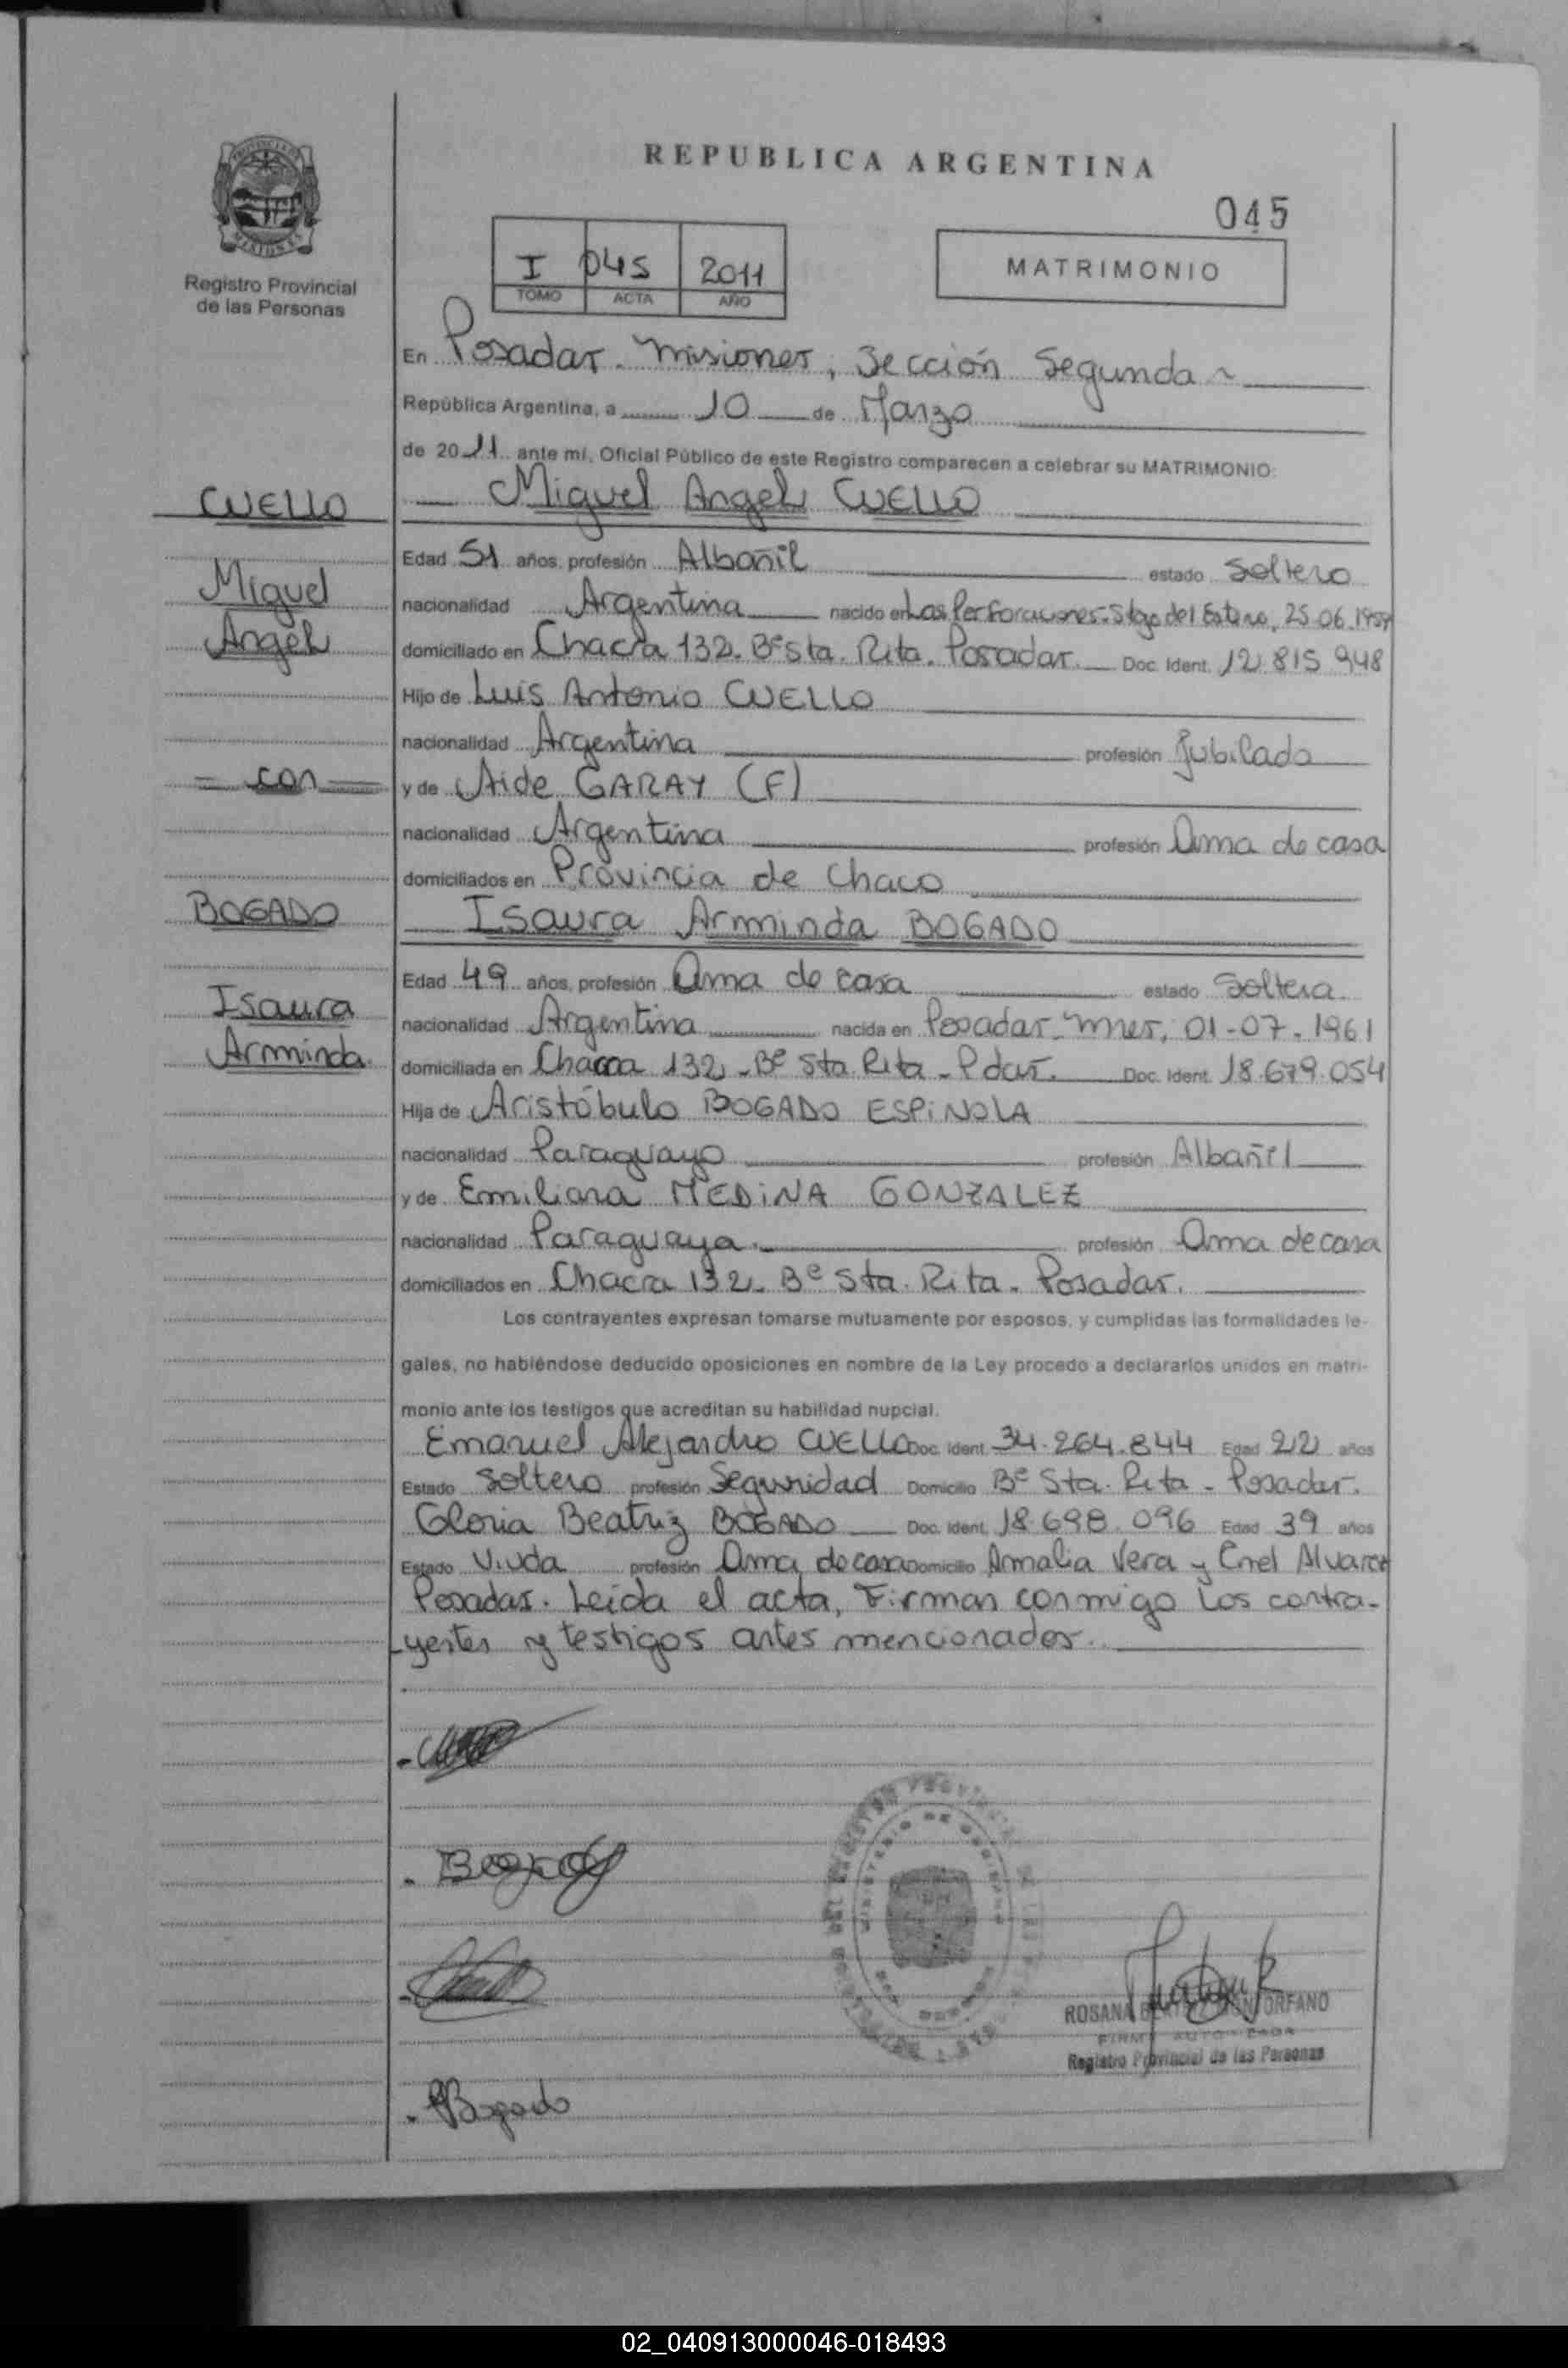 REPUBLICA ARGENTINA
045
PROVINCIA DE
MISIONES
Registro Provincial
de las Personas
I 045 2011
TOMO ACTA AÑO
MATRIMONIO
En Posadas - Misiones, Sección Segunda
República Argentina, a 10 de Marzo
de 2011 ante mí, Oficial Público de este Registro comparecen a celebrar su MATRIMONIO:
CUELLO
Miguel Angel CUELLO
Edad 51 años, profesión Albañil estado Soltero
Miguel
nacionalidad Argentina nacido en Las Perforaciones - Stgo del Estero, 25.06.1959
Angel
domiciliado en Chacra 132. Bº Sta. Rita. Posadas. Doc. Ident. 12.815.948
Hijo de Luis Antonio CUELLO
nacionalidad Argentina profesión Jubilado
= con =
y de Aide GARAY (F)
nacionalidad Argentina profesión Ama de casa
domiciliados en Provincia de Chaco
BOGADO
Isaura Arminda BOGADO
Edad 49 años, profesión Ama de casa estado Soltera.
Isaura
nacionalidad Argentina nacida en Posadas - Mnes, 01-07-1961
Arminda.
domiciliada en Chacra 132 - Bº Sta Rita - Pdas. Doc. Ident. 18.679.054
Hija de Aristóbulo BOGADO ESPINOLA
nacionalidad Paraguayo profesión Albañil
y de Emiliana MEDINA GONZALEZ
nacionalidad Paraguaya. profesión Ama de casa
domiciliados en Chacra 132. Bº Sta. Rita - Posadas.
Los contrayentes expresan tomarse mutuamente por esposos, y cumplidas las formalidades le-
gales, no habiéndose deducido oposiciones en nombre de la Ley procedo a declararlos unidos en matri-
monio ante los testigos que acreditan su habilidad nupcial.
Emanuel Alejandro CUELLO Doc. Ident. 34.264.844 Edad 22 años
Estado Soltero profesión Seguridad Domicilio Bº Sta. Rita - Posadas.
Gloria Beatriz BOGADO Doc. Ident. 18.698.096 Edad 39 años
Estado Viuda profesión Ama de casa Domicilio Amalia Vera y Cnel Alvarez
Posadas. Leida el acta, Firman conmigo los contra-
yentes y testigos antes mencionados.
Bogado
ROSANA
Registro Provincial de las Personas
02_040913000046-018493